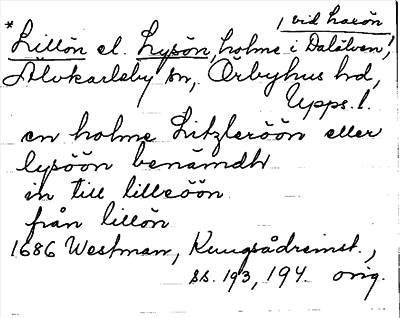 vid Laxön
*Lillön el. Lysön, holme i Dalälven,
Älvkarleby sn, Örbyhus hd,
Upps. l.
en holme Litzleröön eller
lysöön benämdh
in till lilleöön
från lillön
1686 Westman, Kungsådreinst.,
ss. 193, 194. orig.